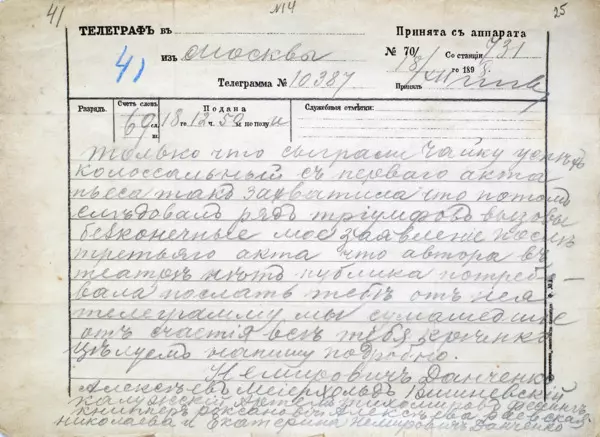 41
№14
25
ТЕЛЕГРАФЪ въ
Принята съ аппарата
изъ Москвы
№ 70/
Со станціи 731
41
18/XII го 1898 г.
Телеграмма № 10387
Принялъ
Разрядъ.
Счетъ словъ.
Подана
Служебныя отмѣтки:
69 сл.
18 го 12 ч. 50 м. по полу н
только что сыграли Чайку успѣхъ
колоссальный съ перваго акта
пьеса такъ захватила что потомъ
слѣдовалъ рядъ тріумфовъ вызовы
безконечные мое заявленіе послѣ
третьяго акта что автора въ
театрѣ нѣтъ публика потребо
вала послать тебѣ отъ нея
телеграмму мы сумасшедшіе
отъ счастія всѣ тебя крѣпко
цѣлуемъ напишу подробно.
Немировичъ Данченко
Алексѣевъ Мейерхольдъ Вишневскій
Калужскій Артемъ Тихомировъ Фесингъ
Книпперъ Роксановичъ Алексѣева Раевская
Николаева и Екатерина Немировичъ Данченко